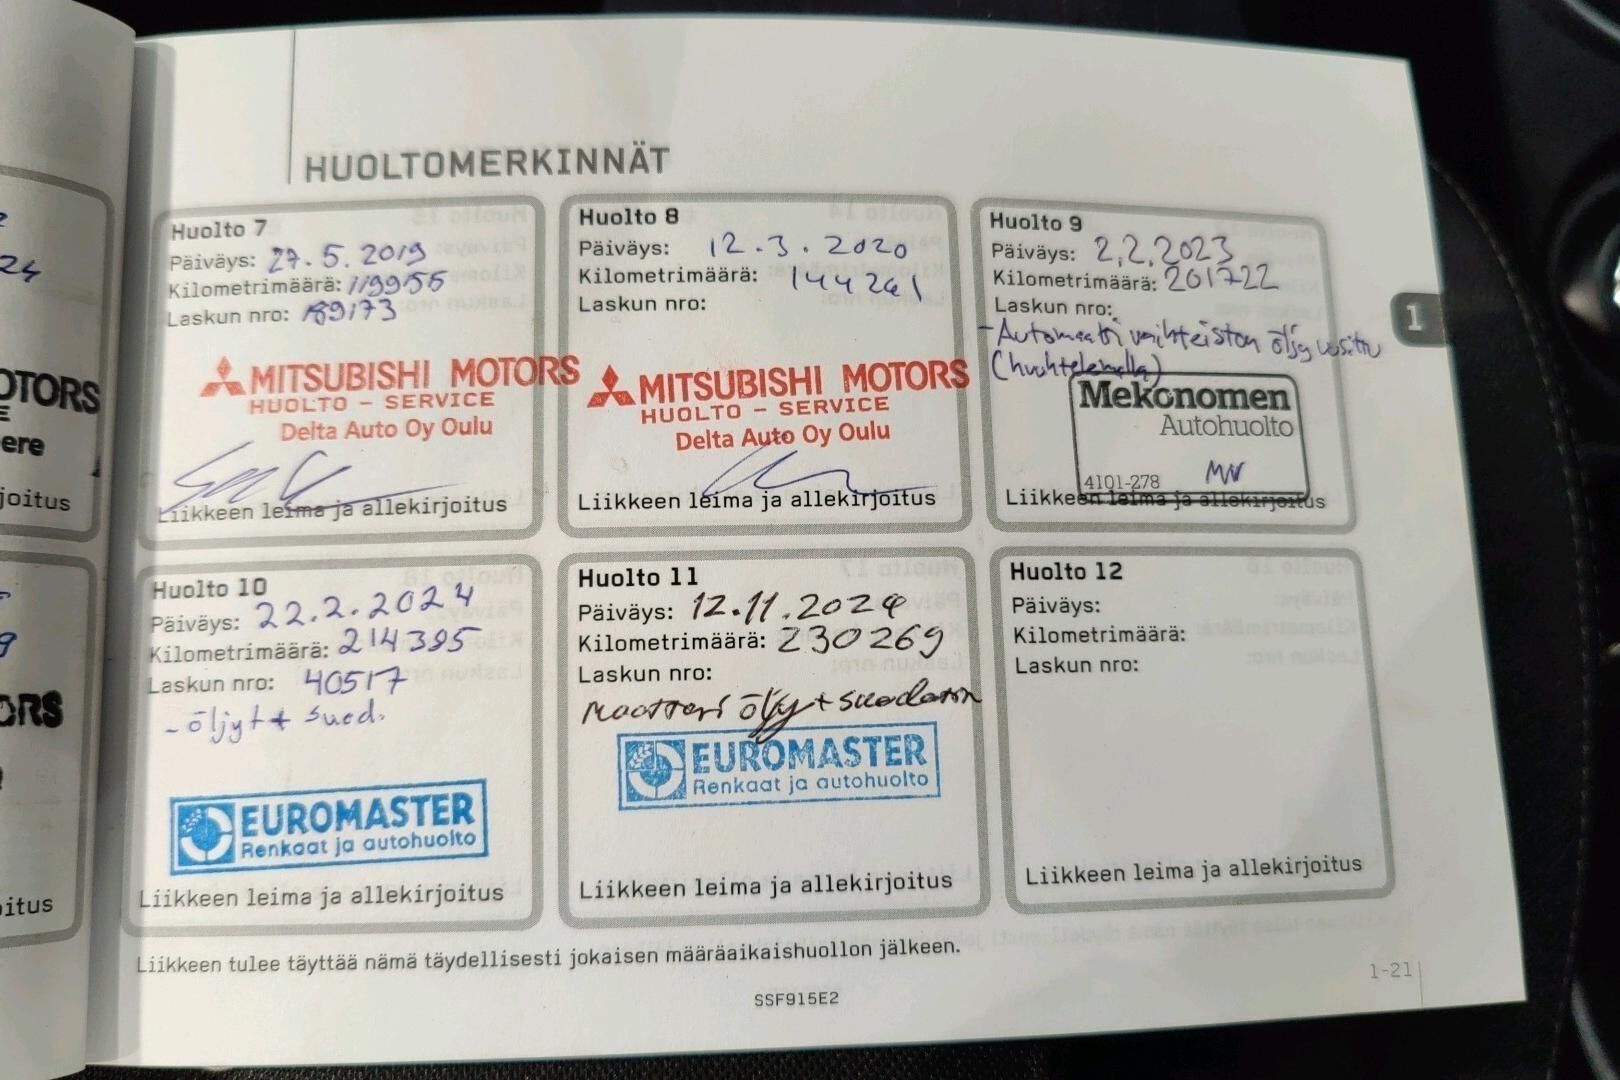 HUOLTOMERKINNÄT
Huolto 7
Päiväys: 27.5.2019
Kilometrimäärä: 119955
Laskun nro: 189173
MITSUBISHI MOTORS
HUOLTO - SERVICE
Delta Auto Oy Oulu
Liikkeen leima ja allekirjoitus
Huolto 8
Päiväys: 12.3.2020
Kilometrimäärä: 144241
Laskun nro:
MITSUBISHI MOTORS
HUOLTO - SERVICE
Delta Auto Oy Oulu
Liikkeen leima ja allekirjoitus
Huolto 9
Päiväys: 2.2.2023
Kilometrimäärä: 201722
Laskun nro:
- Automaatti vaihteiston öljy uusittu
(huuhtelemalla)
Mekonomen
Autohuolto
4101-278
Liikkeen leima ja allekirjoitus
Huolto 10
Päiväys: 22.2.2024
Kilometrimäärä: 214395
Laskun nro: 40517
- öljyt + suod.
EUROMASTER
Renkaat ja autohuolto
Liikkeen leima ja allekirjoitus
Huolto 11
Päiväys: 12.11.2024
Kilometrimäärä: 230269
Laskun nro:
Moottori öljy + suodatin
EUROMASTER
Renkaat ja autohuolto
Liikkeen leima ja allekirjoitus
Huolto 12
Päiväys:
Kilometrimäärä:
Laskun nro:
Liikkeen leima ja allekirjoitus
Liikkeen tulee täyttää nämä täydellisesti jokaisen määräaikaishuollon jälkeen.
SSF915E2
1-21
1
24
OTORS
ere
joitus
9
ORS
oitus